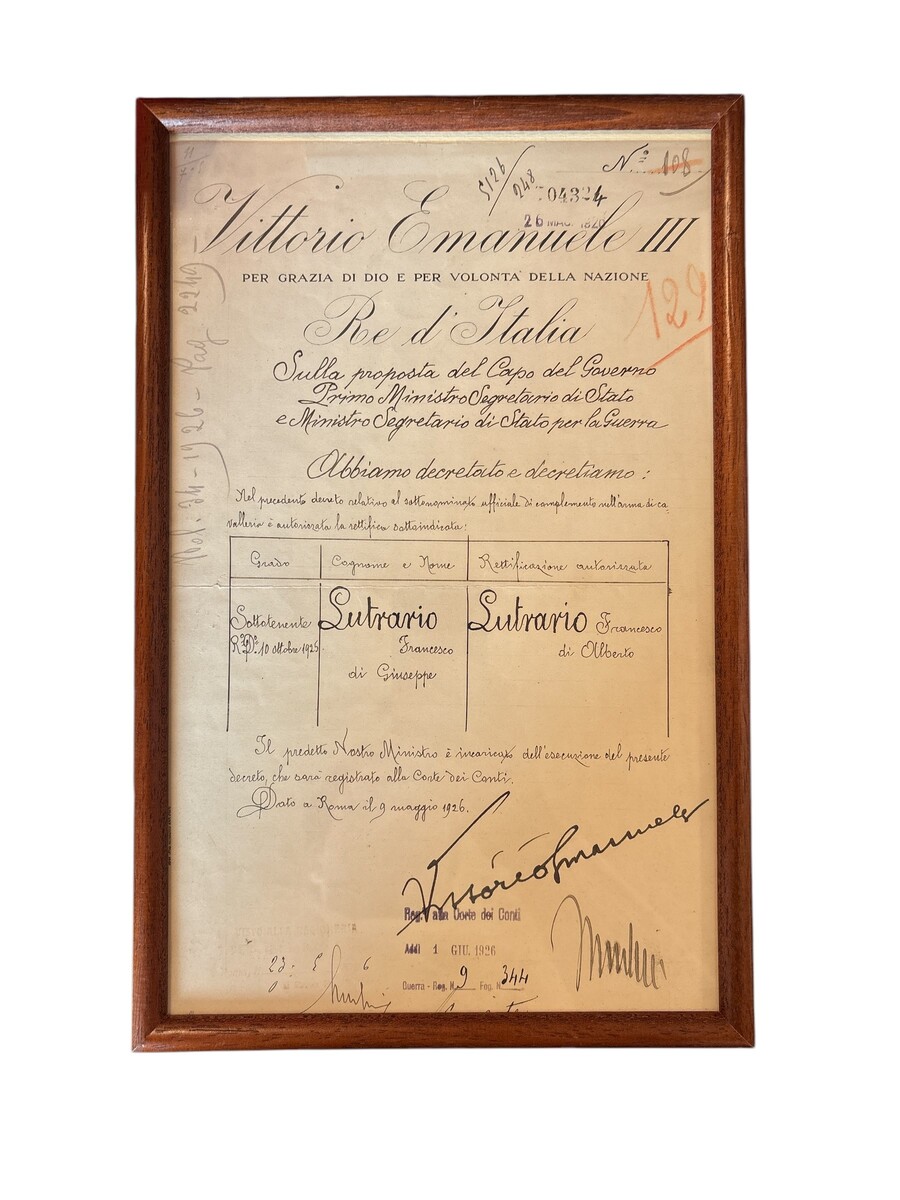 Nº 108
5126/248
04324
26 MAG. 1926
Vittorio Emanuele III
PER GRAZIA DI DIO E PER VOLONTA' DELLA NAZIONE
129
Re d'Italia
Sulla proposta del Capo del Governo
Primo Ministro Segretario di Stato
e Ministro Segretario di Stato per la Guerra
Abbiamo decretato e decretiamo:
Nel precedente decreto relativo al sottonominato ufficiale di complemento nell'arma di ca
valleria è autorizzata la rettifica sottoindicata:
Grado Cognome e Nome Rettificazione autorizzata
Sottotenente Lutrario Lutrario Francesco
R.D. 10 ottobre 1925 Francesco di Alberto
di Giuseppe
Il predetto Nostro Ministro è incaricato dell'esecuzione del presente
decreto, che sarà registrato alla Corte dei Conti.
Dato a Roma il 9 maggio 1926.
Vittorio Emanuele
Reg. alla Corte dei Conti
Addì 1 GIU. 1926
Guerra - Reg. N. 9 Fog. N. 344
23: 5 6